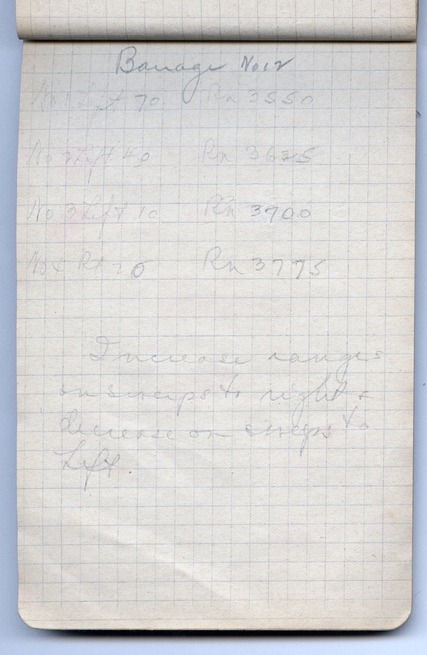 Barrage No 12
No 1 Left 70 Rn 3550
No 2 Left 40 Rn 3625
No 3 Left 10 Rn 3700
No 4 Rt 20 Rn 3775
Increase ranges
on sweeps to right &
decrease on sweeps to
Left.